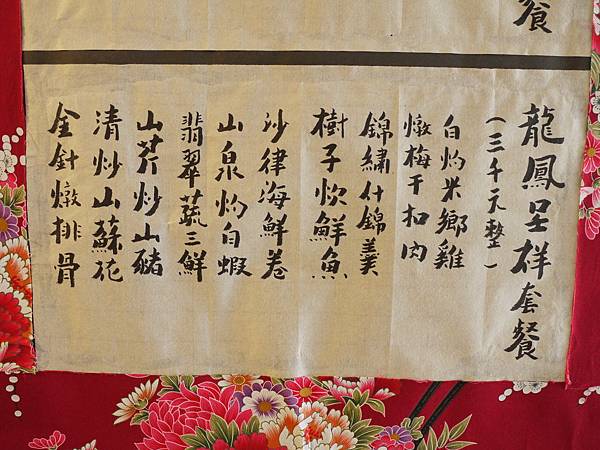 餐
龍鳳呈群套餐
(三千元整)
白灼米鄉雞
燉梅干扣肉
錦繡什錦羹
樹子炊鮮魚
沙律海鮮卷
山泉灼白蝦
翡翠蔬三鮮
山芹炒山豬
清炒山蘇花
金針燉排骨